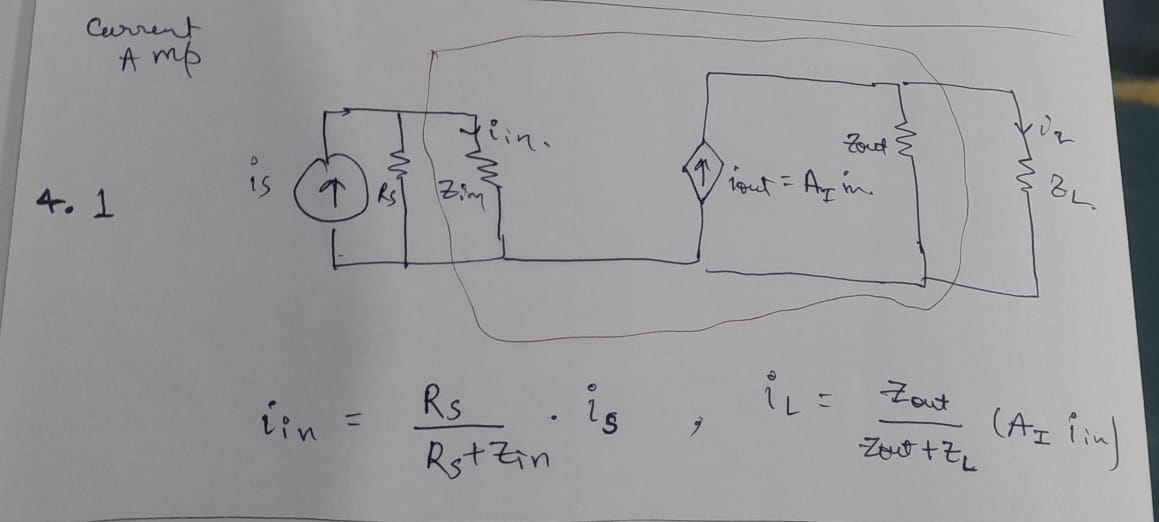 Current
Amp
4. 1
is
Rs
Zin
iin.
iout = A_I in.
Zout
iL
ZL.
iin = Rs / (Rs + Zin) . is , iL = Zout / (Zout + ZL) (A_I iin)